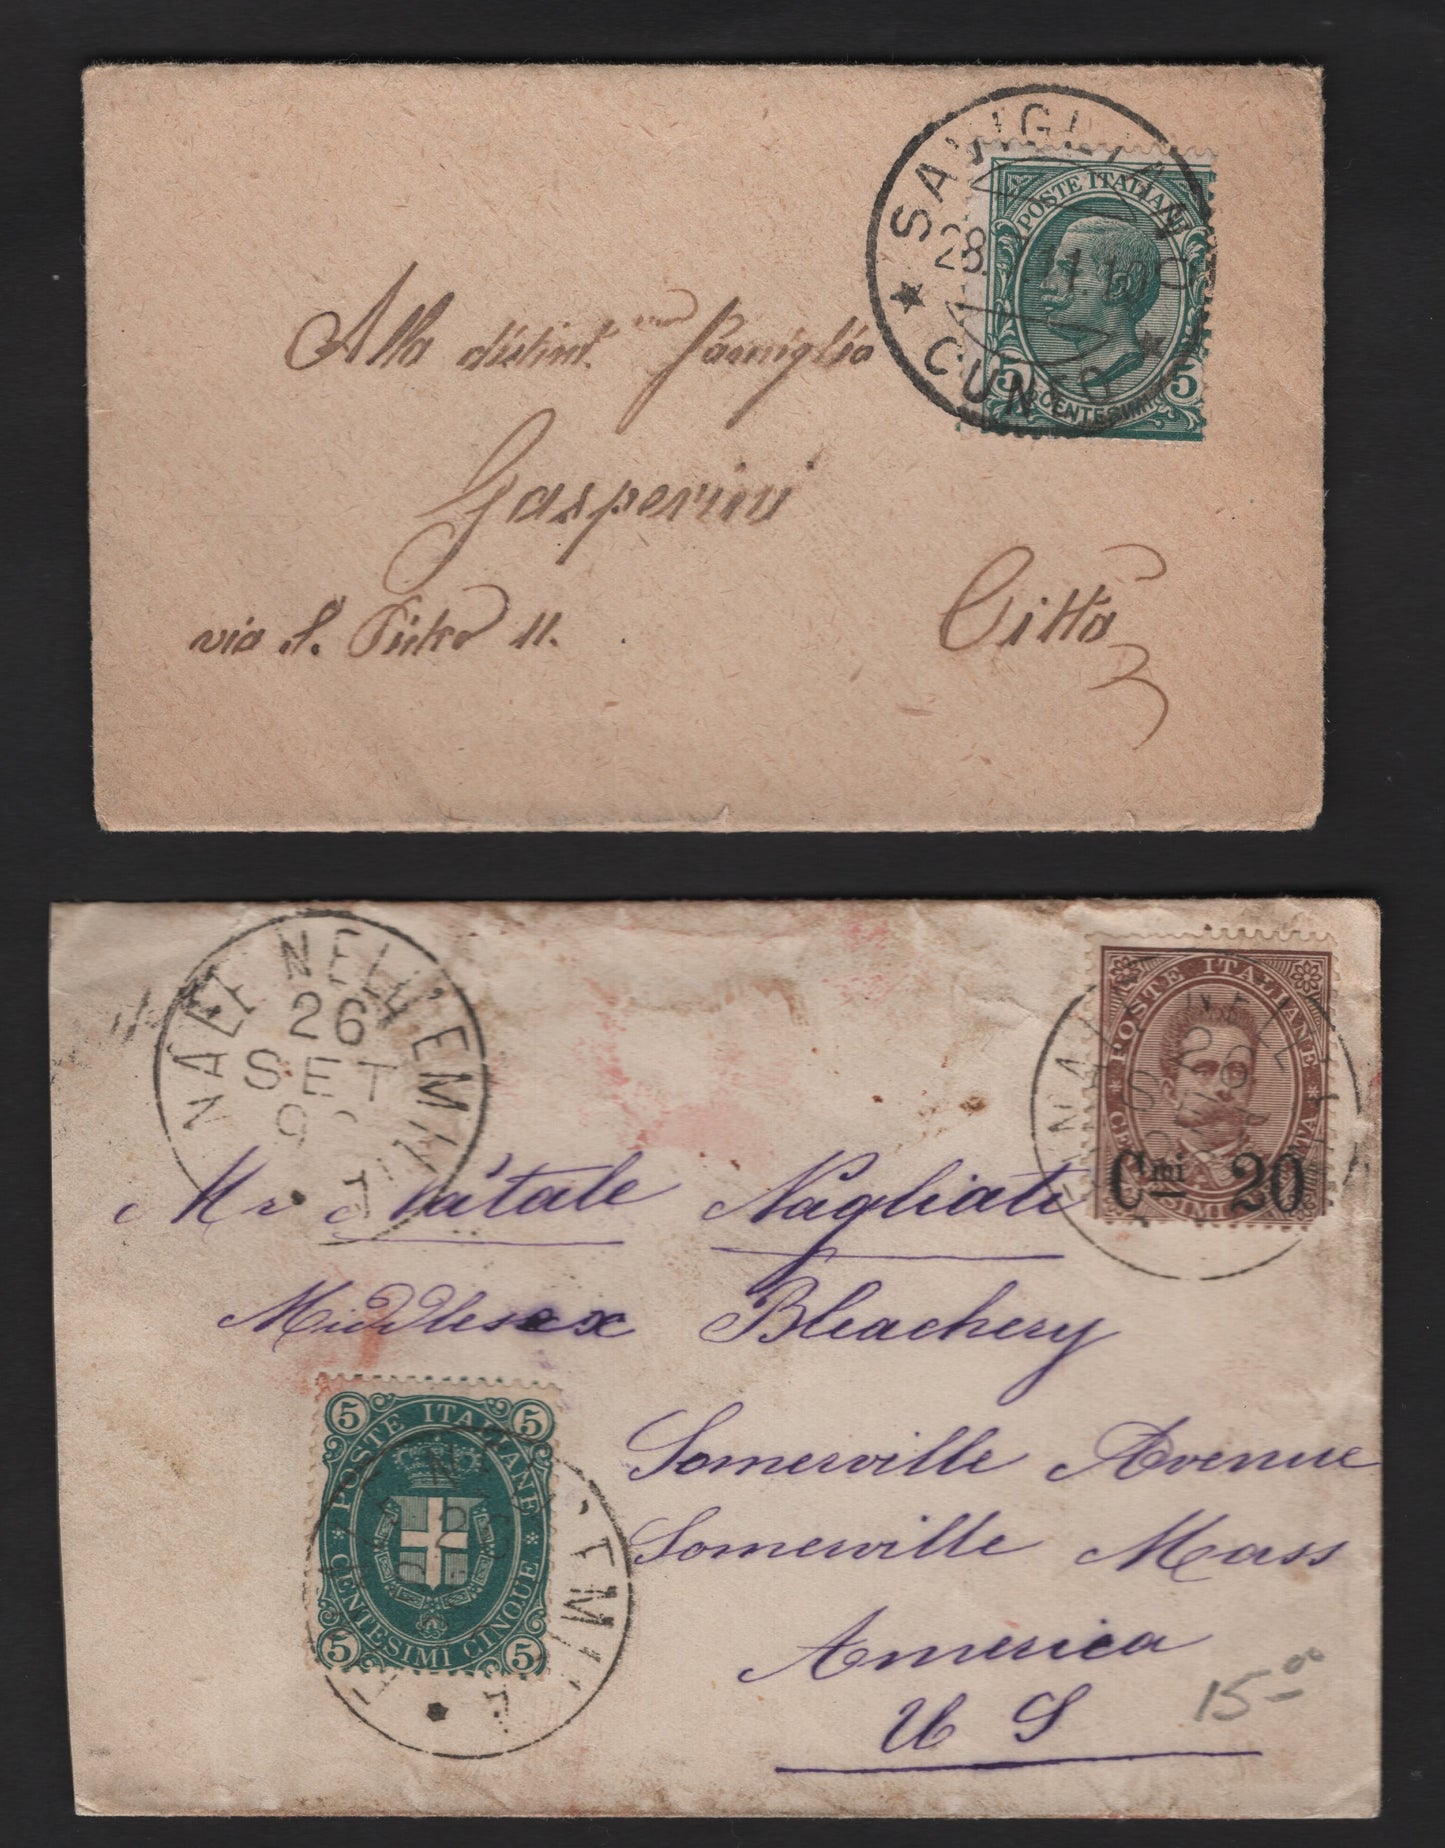 SAVIGLIANO
28.11.10
CUNEO
POSTE ITALIANE
5 CENTESIMI 5
Alla distint.ma Famiglia
Gasperini
via S. Pietro 11.
Città
NELL'EMILIA
26
SET
9
POSTE ITALIANE
Cmi 20
Mr Natale Nagliati
Middlesex Bleachery
5 5
POSTE ITALIANE
CENTESIMI CINQUE
5 5
Somerville Avenue
Somerville Mass
America
U S
15.00